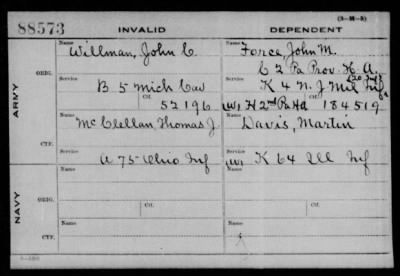 (3-M-5)
88573 INVALID DEPENDENT
ARMY
ORIG. Name Willman, John C Name Force, John M.
C 2 Pa Prov. H. A.
Service B 5 Mich Cav Service K 4 N. J Mil Inf
Ctf. 52196 (W) H 2nd Pa HA Ctf. 184519
CTF. Name McClellan, Thomas J. Name Davis, Martin
Service A 75 Ohio Inf Service (W) K 64 Ill Inf
NAVY
ORIG. Name Name
Service Ctf. Service Ctf.
CTF. Name Name
Service Service